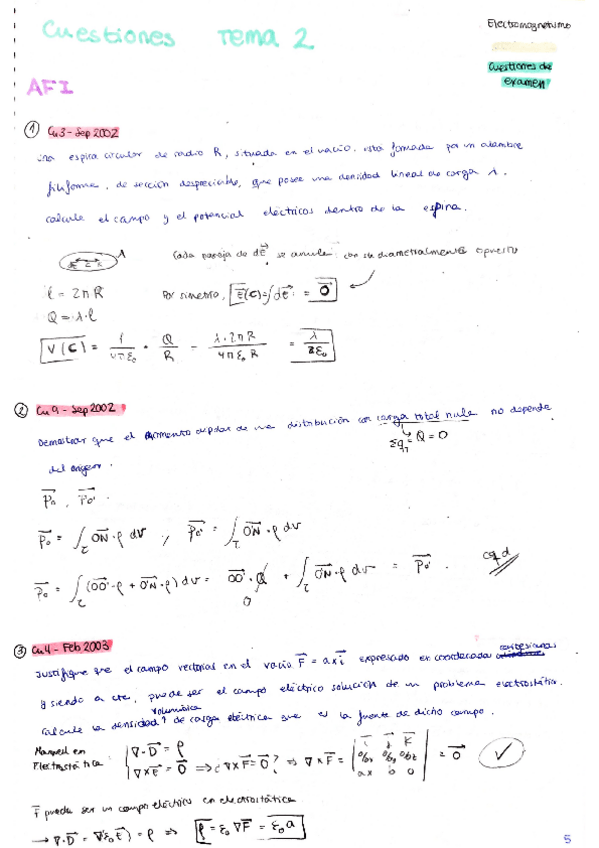 Cuestiones Tema 2
Electromagnetismo
Cuestiones de
examen
AFI
① Cu3 - Sep 2002
una espira circular de radio R, situada en el vacío. esta formada por un alambre
filiforme, de sección despreciable, que posee una densidad lineal de carga λ.
calcule el campo y el potencial eléctricos dentro de la espira.
Cada pareja de dE⃗ se anula con su diametralmente opuesto
λ
l = 2πR
Por simetría, E⃗(C) = ∫dE⃗ = 0⃗
Q = λ·l
V(C) = 1/4πε₀ · Q/R = λ·2πR/4πε₀R = λ/2ε₀
② Cu9 - Sep 2002
Demostrar que el momento dipolar de una distribución con carga total nula no depende
Σq = Q = 0
del origen.
P⃗₀, P⃗₀'
P⃗₀ = ∫τ ON⃗·ρ dv ; P⃗₀' = ∫τ O'N⃗·ρ dv
P⃗₀ = ∫τ (OO'⃗·ρ + O'N⃗·ρ) dv = OO'⃗·Q + ∫τ O'N⃗·ρ dv = P⃗₀' cqd
0
③ Cu4 - Feb 2003
cartesianas
Justifique que el campo vectorial en el vacío F⃗ = ax i⃗ expresado en coordenadas
y siendo a cte, puede ser el campo eléctrico solución de un problema electrostático.
volumica
Calcule la densidad de carga eléctrica que es la fuente de dicho campo.
Maxwell en
Electrostática:
∇·D⃗ = ρ
∇×E⃗ = 0⃗ ⇒ ¿∇×F⃗ = 0⃗? ⇒ ∇×F⃗ = | i⃗ j⃗ k⃗ | ∂/∂x ∂/∂y ∂/∂z | ax 0 0 | = 0⃗ ✓
F⃗ puede ser un campo eléctrico en electrostática
→ ∇·D⃗ = ∇(ε₀E⃗) = ρ ⇒ ρ = ε₀∇F⃗ = ε₀a
5